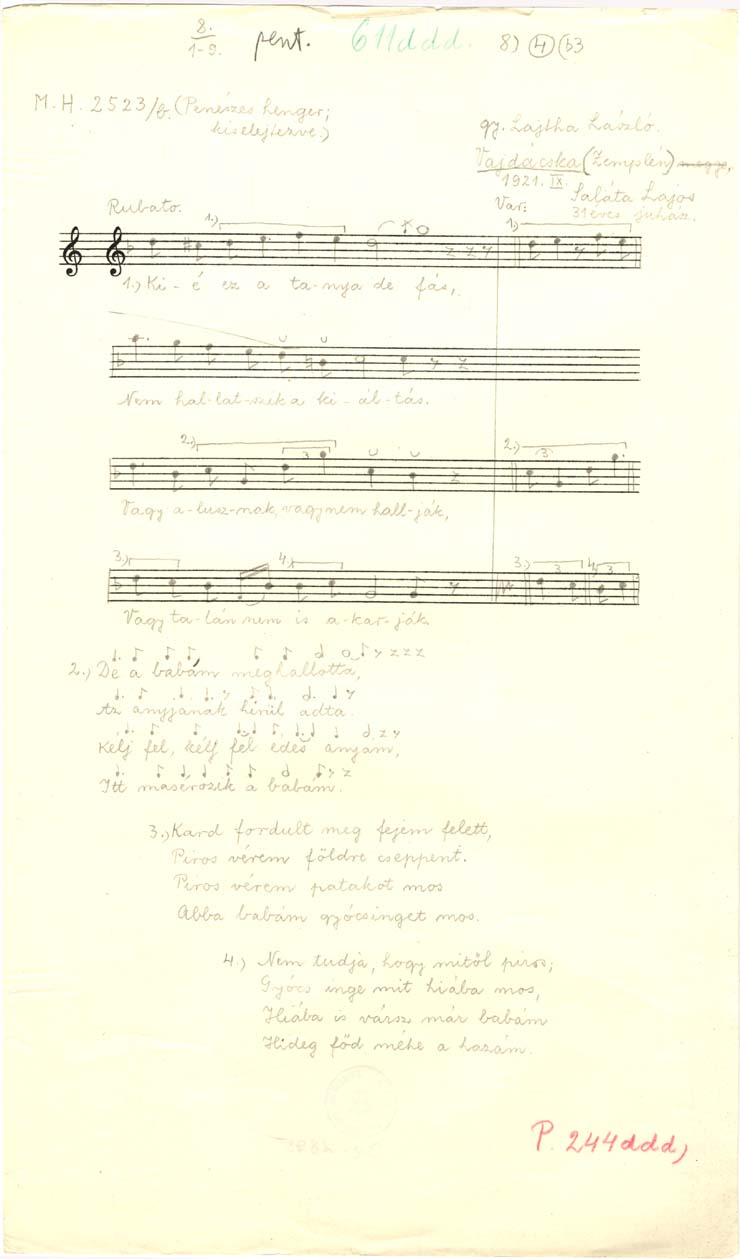 8.
1-9.
pent. 611ddd. 8) 4 (b3
M. H. 2523/b. (Penészes henger;
kiselejtezve.)
gy. Lajtha László.
Vajdácska (Zemplén) megye,
1921. IX.
Saláta Lajos
31 éves juhász.
Rubato.
1.)
Var:
1.)
1.) Ki - é ez a ta-nya de fás,
Nem hal-lat-szik a ki - ál - tás.
2.)
3
2.)
3
Vagy a-lusz-nak, vagy nem hall-ják,
3.)
4.)
3.)
3
4.)
3
Vagy ta-lán nem is a-kar-ják.
2.) De a babám meghallotta,
Az anyjának hirül adta.
Kelj fel, kelj fel édes anyám,
Itt masérozik a babám.
3.) Kard fordult meg fejem felett,
Piros vérem földre cseppent.
Piros vérem patakot mos
Abba babám gyócsinget mos.
4.) Nem tudja, hogy mitől piros;
Gyócs inge mit hiába mos,
Hiába is vársz már babám
Hideg főd méhe a hazám.
P. 244ddd)